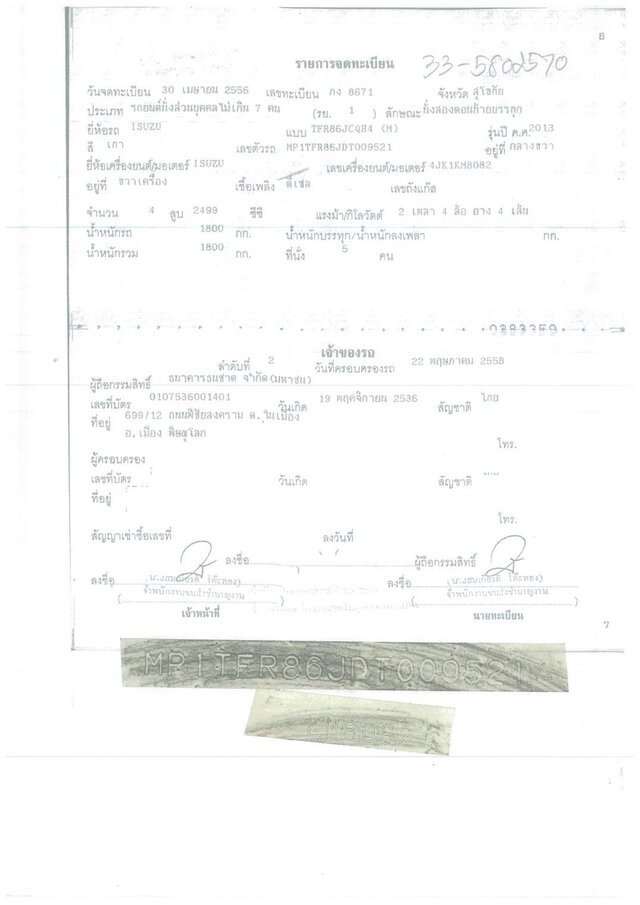 8
รายการจดทะเบียน 33-5802570
วันจดทะเบียน 30 เมษายน 2556 เลขทะเบียน กง 8671 จังหวัด สุโขทัย
ประเภท รถยนต์นั่งส่วนบุคคลไม่เกิน 7 คน (รย. 1 ) ลักษณะ นั่งสองตอนท้ายบรรทุก
ยี่ห้อรถ ISUZU แบบ TFR86JCQH4 (M) รุ่นปี ค.ศ. 2013
สี เทา เลขตัวรถ MP1TFR86JDT009521 อยู่ที่ กลางขวา
ยี่ห้อเครื่องยนต์/มอเตอร์ ISUZU เลขเครื่องยนต์/มอเตอร์ 4JK1KM8082
อยู่ที่ ขวาเครื่อง เชื้อเพลิง ดีเซล เลขถังแก๊ส
จำนวน 4 สูบ 2499 ซีซี แรงม้า/กิโลวัตต์ 2 เพลา 4 ล้อ ยาง 4 เส้น
น้ำหนักรถ 1800 กก. น้ำหนักบรรทุก/น้ำหนักลงเพลา กก.
น้ำหนักรวม 1800 กก. ที่นั่ง 5 คน
เจ้าของรถ
ลำดับที่ 2 วันที่ครอบครองรถ 22 พฤษภาคม 2558
ผู้ถือกรรมสิทธิ์ ธนาคารธนชาต จำกัด(มหาชน)
เลขที่บัตร 0107536001401 วันเกิด 19 พฤศจิกายน 2536 สัญชาติ ไทย
ที่อยู่ 699/12 ถนนพิชัยสงคราม ต.ในเมือง
อ.เมือง พิษณุโลก
โทร.
ผู้ครอบครอง
เลขที่บัตร วันเกิด สัญชาติ
ที่อยู่
โทร.
สัญญาเช่าซื้อเลขที่ ลงวันที่
ลงชื่อ ผู้ถือกรรมสิทธิ์
ลงชื่อ ลงชื่อ
เจ้าพนักงานขนส่งชำนาญงาน เจ้าพนักงานขนส่งชำนาญงาน
เจ้าหน้าที่ นายทะเบียน
7
MP1TFR86JDT009521